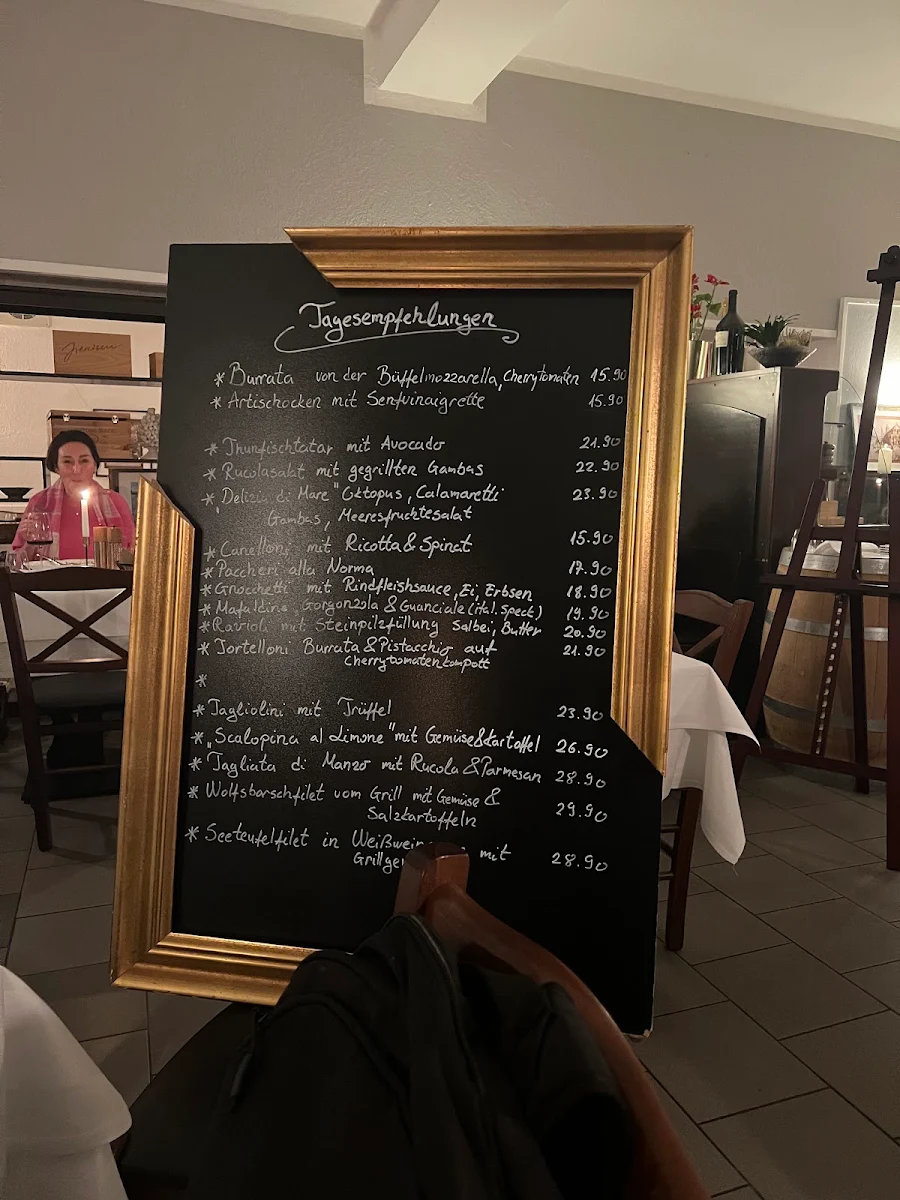 Tagesempfehlungen
* Burrata von der Büffelmozzarella, Cherrytomaten 15.90
* Artischocken mit Senfvinaigrette 15.90
* Thunfischtatar mit Avocado 21.90
* Rucolasalat mit gegrillten Gambas 22.90
* "Delizia di Mare" Oktopus, Calamaretti 23.90
Gambas, Meeresfruchtesalat
* Canelloni mit Ricotta & Spinat 15.90
* Paccheri alla Norma 17.90
* Gnocchetti mit Rindfleishsauce, Ei, Erbsen 18.90
* Mafaldine Gorgonzola & Guanciale (ital. Speck) 19.90
* Ravioli mit Steinpilzfüllung Salbei, Butter 20.90
* Tortelloni Burrata & Pistacchio auf 21.90
Cherrytomatenkompott
*
* Tagliolini mit Trüffel 23.90
* "Scalopina al Limone" mit Gemüse & Kartoffel 26.90
* Tagliata di Manzo mit Rucola & Parmesan 28.90
* Wolfsbarschfilet vom Grill mit Gemüse & 29.90
Salzkartoffeln
* Seeteufelfilet in Weißwein mit 28.90
Grillge